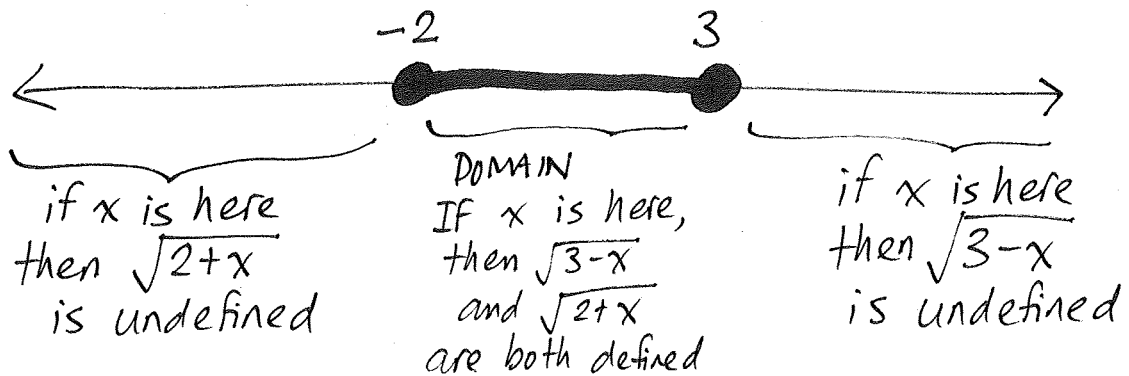 -2 3
if x is here
then √2+x
is undefined
DOMAIN
IF x is here,
then √3-x
and √2+x
are both defined
if x is here
then √3-x
is undefined